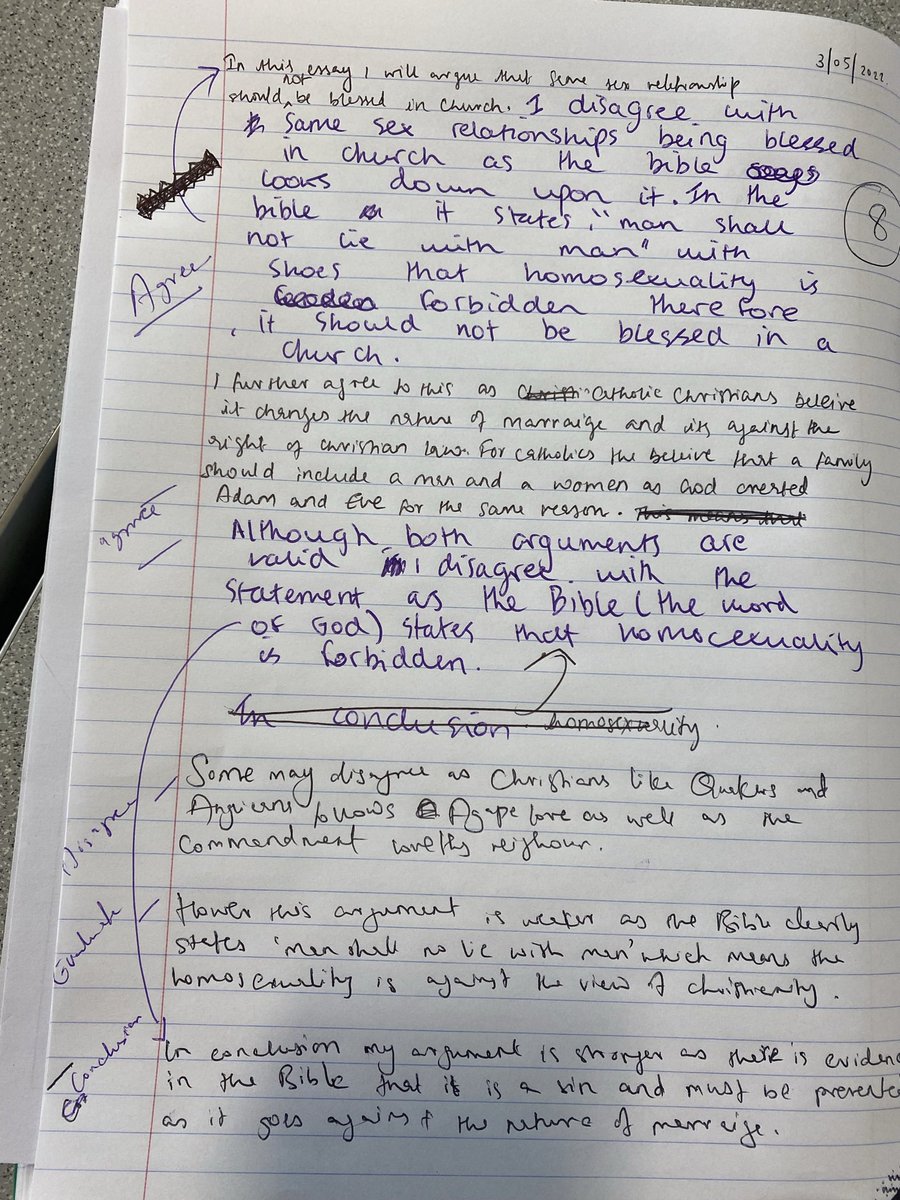 3/05/2022
In this essay I will argue that same sex relationship
should not be blessed in church. I disagree with
same sex relationships being blessed
in church as the bible
looks down upon it. In the
bible it states, "man shall
not lie with man" with
shoes that homosexuality is
forbidden therefore
, it should not be blessed in a
church.
8
Agree
I further agree to this as Catholic Christians beleive
it changes the nature of marraige and its against the
right of christian law. For catholics the beleive that a family
should include a man and a women as God created
Adam and Eve for the same reason. This means that
agree
Although both arguments are
valid I disagree with the
statement as the Bible (the word
of God) states that homocexuality
is forbidden.
In conclusion homosexuality.
Some may disagree as Christians like Quakers and
follows Agape love as well as the
commandment love thy neighour.
Disagree
Hower this argument is weaker as the Bible clearly
states 'man shall no lie with man' which means the
homosexuality is against the view of christianity.
In conclusion my argument is stronger as there is evidenc
in the Bible that it is a sin and must be prevente
as it goes against the nature of marraige.
Conclusion